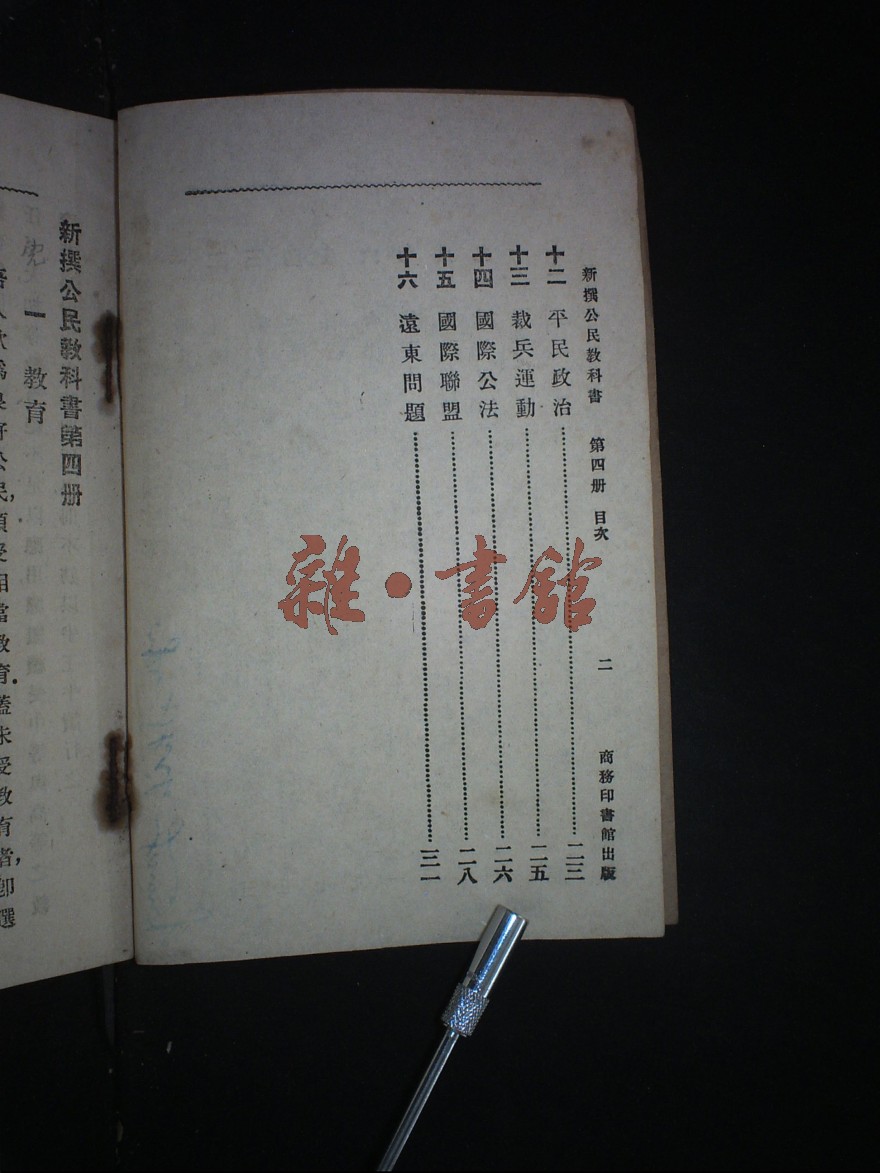 新撰公民教科書 第四册 目次 二 商務印書館出版
十二 平民政治 二三
十三 裁兵運動 二五
十四 國際公法 二六
十五 國際聯盟 二八
十六 遠東問題 三一
雜·書館
新撰公民教科書第四册
一 教育
公民,須受相當教育.蓋未受教育者,卽選